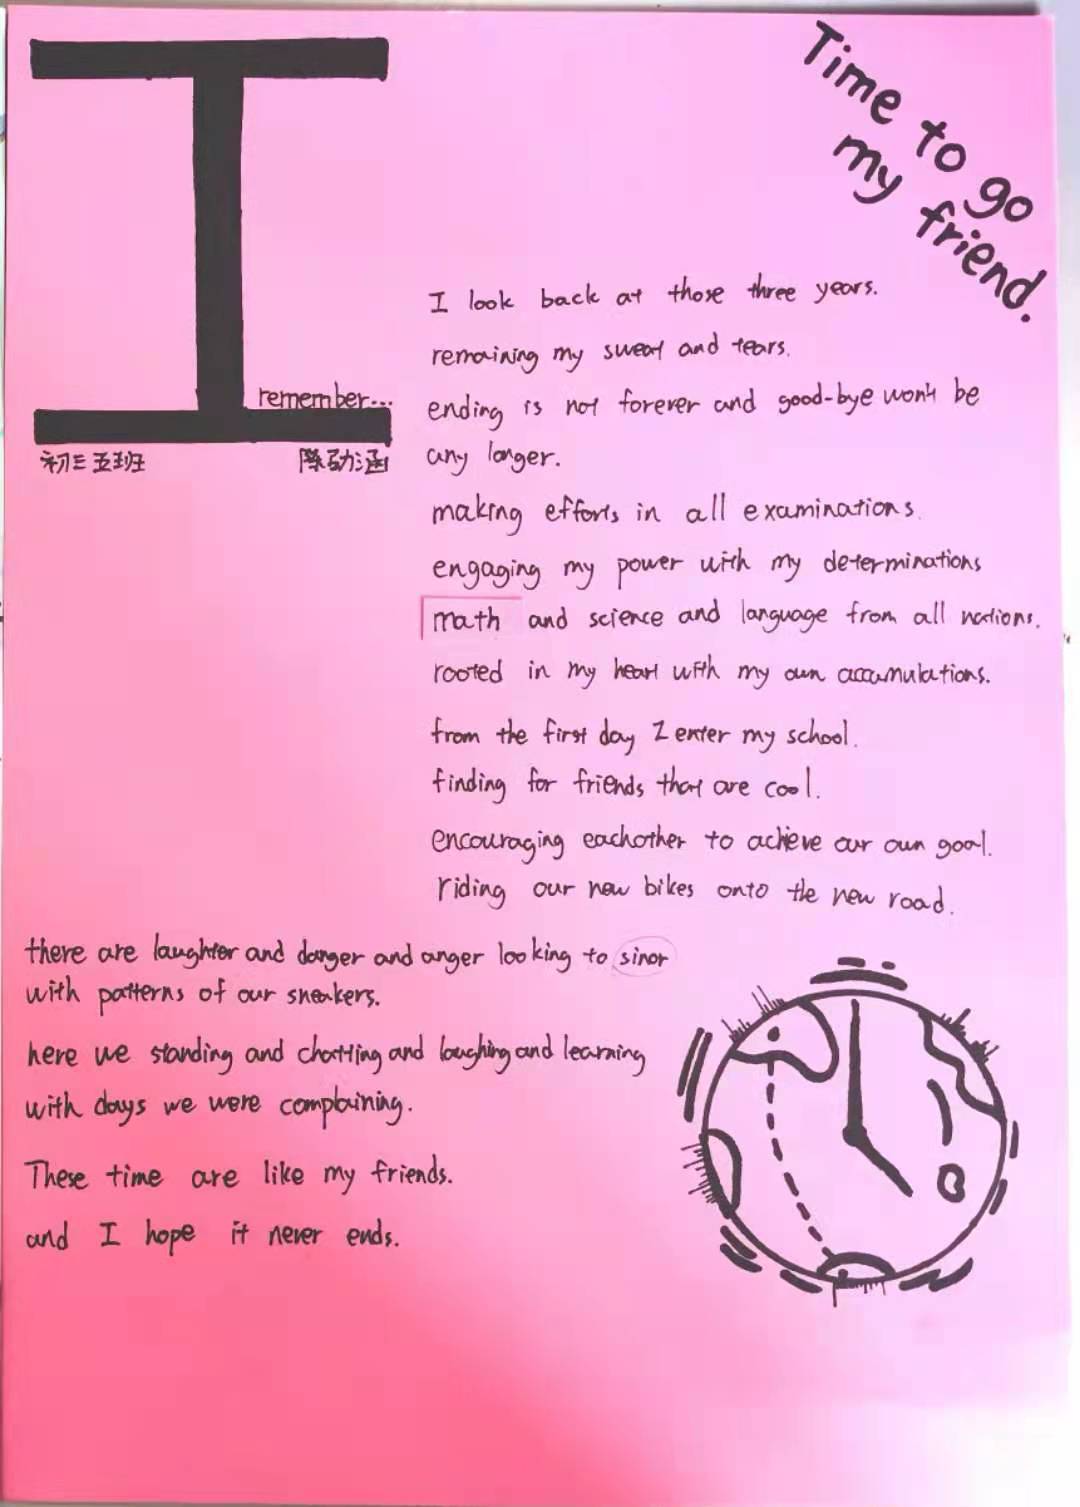 I
remember...
初三五班 陈劭涵
Time to go
my friend.
I look back at those three years.
remaining my sweat and tears.
ending is not forever and good-bye won't be
any longer.
making efforts in all examinations.
engaging my power with my determinations
math and science and language from all nations.
rooted in my heart with my own accumulations.
from the first day I enter my school.
finding for friends that are cool.
encouraging eachother to achieve our own goal.
riding our new bikes onto the new road.
there are laughter and danger and anger looking to sinor
with patterns of our sneakers.
here we standing and chatting and laughing and learning
with days we were complaining.
These time are like my friends.
and I hope it never ends.